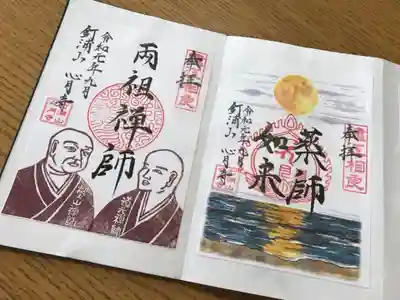 奉拝
両祖禪師
令和元年九月
釘浦山 心月寺
道元禅師
奉拝
相良
薬師
如来
令和元年九月
釘浦山 心月寺